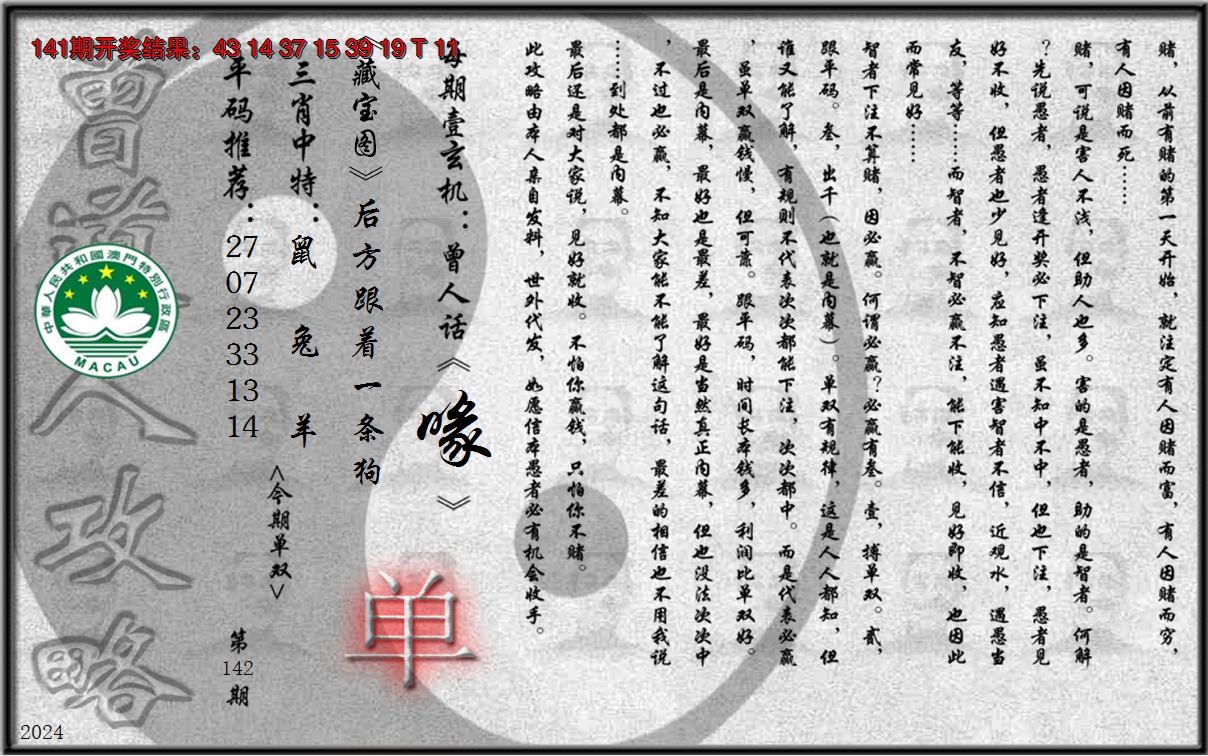 141期开奖结果：43 14 37 15 39 19 T 11
赌，从前有赌的第一天开始，就注定有人因赌而富，有人因赌而穷，
有人因赌而死……
赌，可说是害人不浅，但助人也多。害的是愚者，助的是智者。何解
？先说愚者，愚者逢开奖必下注，虽不知中不中，但也下注，愚者见
好不收，但愚者也少见好，应知愚者遇害智者不信，近观水，遇愚当
友，等等……而智者，不智必赢不注，能下能收，见好即收，也因此
而常见好……
智者下注不算赌，因必赢。何谓必赢？必赢有叁。壹，搏单双。贰，
跟平码。叁，出千（也就是内幕）。单双有规律，这是人人都知，但
谁又能了解，有规则不代表次次都能下注，次次都中。而是代表必赢
，虽单双赢钱慢，但可靠。跟平码，时间长本钱多，利润比单双好。
最后是内幕，最好也是最差，最好是当然真正内幕，但也没法次次中
，不过也必赢，不知大家能不能了解这句话，最差的相信也不用我说
……到处都是内幕。
最后还是对大家说，见好就收。不怕你赢钱，只怕你不赌。
此攻略由本人亲自发料，世外代发，如愿信本愚者必有机会收手。
每期壹玄机：曾人话《喙》
《藏宝图》后方跟着一条狗
三肖中特：鼠 兔 羊
<今期单双>
单
平码推荐：27 07 23 33 13 14
第142期
曾道人攻略
中華人民共和國澳門特別行政區
MACAU
2024